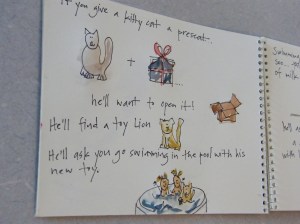 If you give a kitty cat a present.
+
he'll want to open it!
He'll find a toy lion
He'll ask you go swimming in the pool with his
new toy.
Swimming
of milk